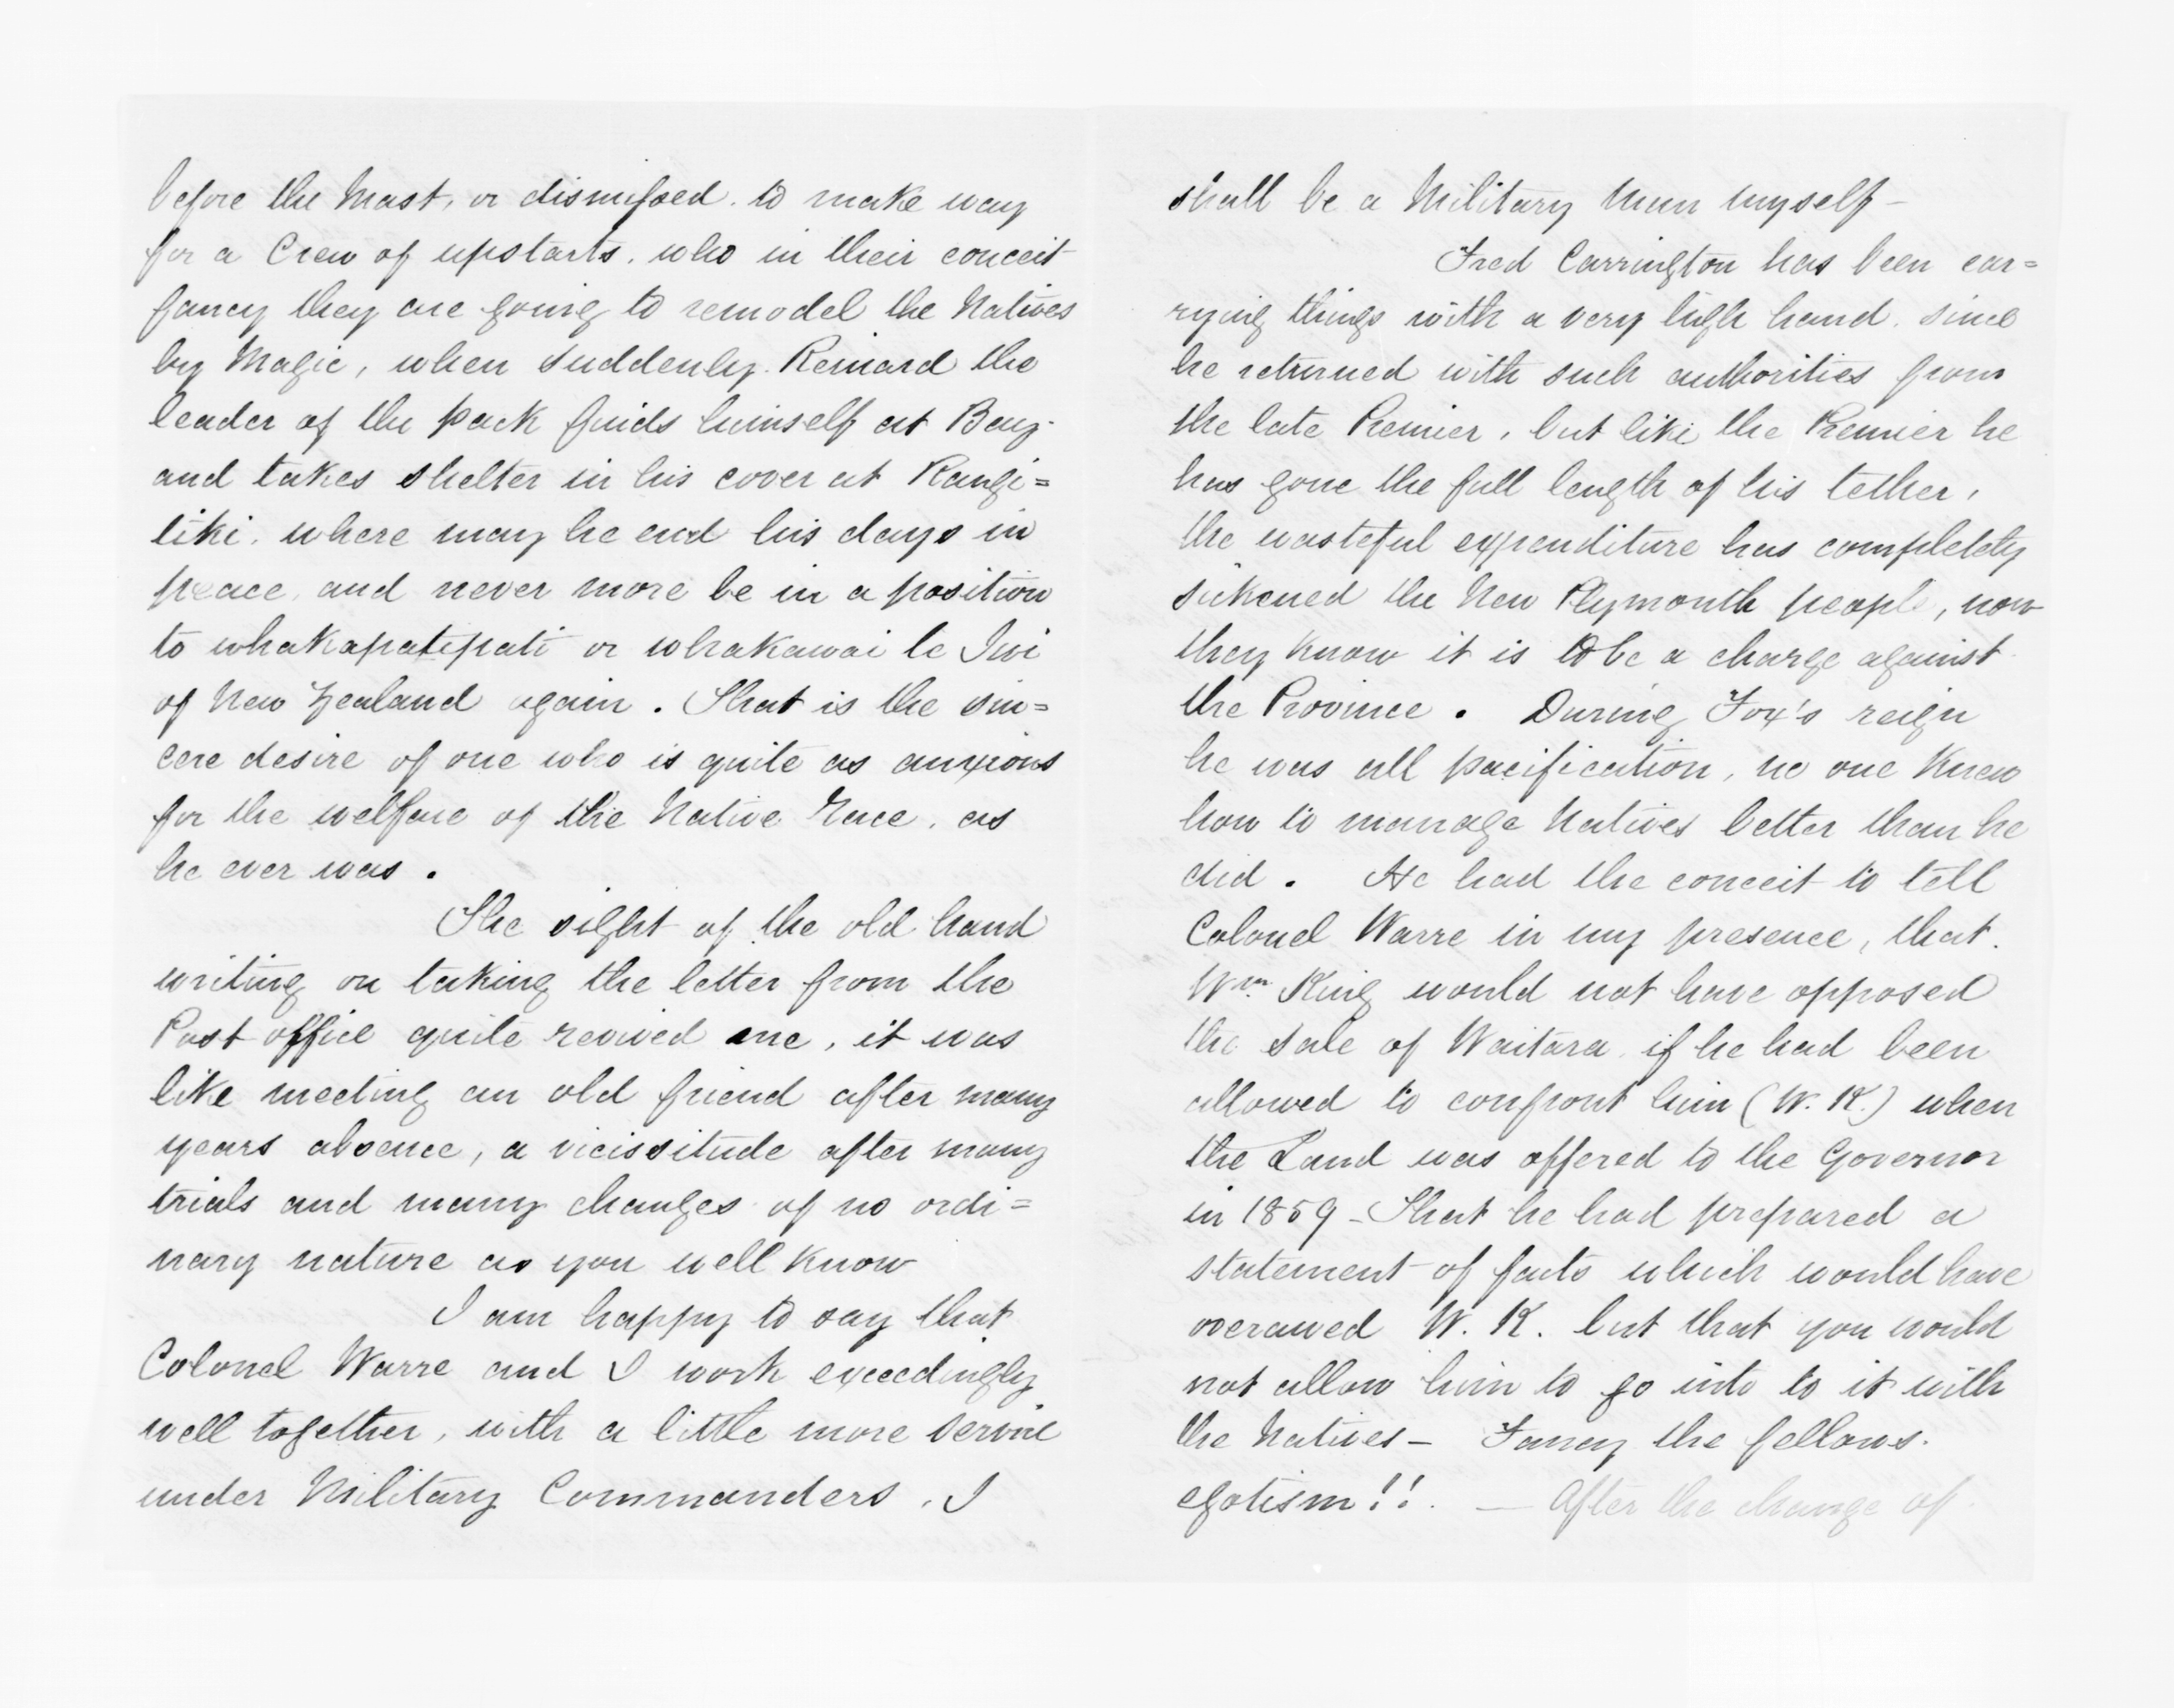 before the Mast, or dismissed. to make way
for a Crew of upstarts. who in their conceit
fancy they are going to remodel the Natives
by Magic, when suddenly Reinard the
leader of the pack finds himself at Bay.
and takes shelter in his cover at Rangi=
tiki. where may he end his days in
peace, and never more be in a position
to whakapatipati or whakawai te Iwi
of New Zealand again. That is the sin=
cere desire of one who is quite as anxious
for the welfare of the Native Race. as
he ever was.
The sight of the old hand
writing on taking the letter from the
Post office quite revived me, it was
like meeting an old friend after many
years absence, a vicissitude after many
trials and many changes of no ordi=
nary nature as you well know
I am happy to say that
Colonel Warre and I work exceedingly
well together, with a little more service
under Military Commanders, I
shall be a Military Man myself -
Fred Carrington has been car=
rying things with a very high hand. since
he returned with such authorities from
the late Premier, but like the Premier he
has gone the full length of his tether,
the wasteful expenditure has completely
sickened the New Plymouth people, now
they know it is to be a charge against
the Province. During Fox's reign
he was all pacification, no one knew
how to manage Natives better than he
did. He had the conceit to tell
Colonel Warre in my presence, that.
Wm. King would not have opposed
the sale of Waitara. if he had been
allowed to confront him (W. K.) when
the Land was offered to the Governor
in 1859 - That he had prepared a
statement of facts which would have
overawed W. K. but that you would
not allow him to go into to it with
the Natives - Fancy the fellows.
egotism!!. — After the change of